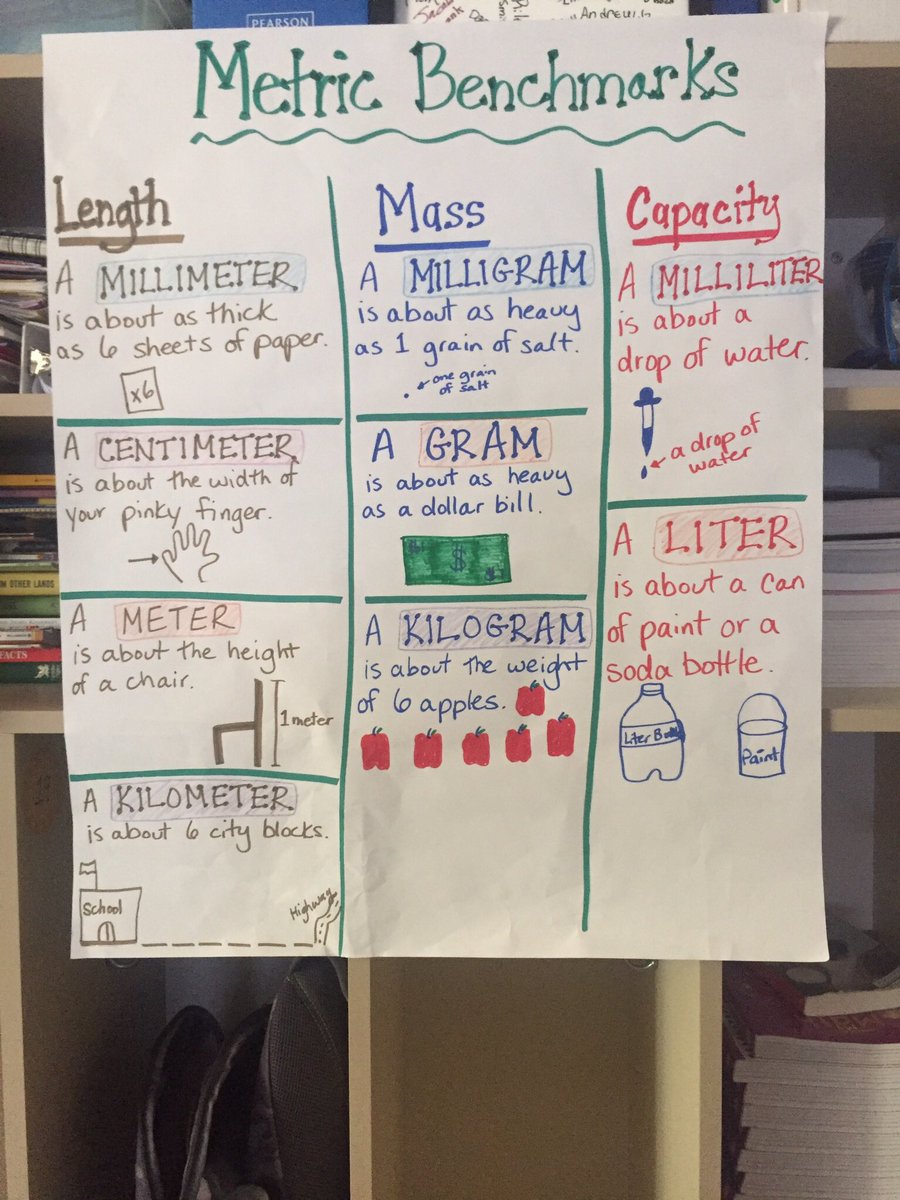 PEARSON
"Andrew G
Metric Benchmarks
Length
A MILLIMETER
is about as thick
as 6 sheets of paper.
x6
A CENTIMETER
is about the width of
your pinky finger.
A METER
is about the height
of a chair.
1 meter
A KILOMETER
is about 6 city blocks.
School
Highway
Mass
A MILLIGRAM
is about as heavy
as 1 grain of salt.
one grain
of salt
A GRAM
is about as heavy
as a dollar bill.
$1
$
$1
A KILOGRAM
is about the weight
of 6 apples.
Capacity
A MILLILITER
is about a
drop of water.
a drop of
water
A LITER
is about a can
of paint or a
soda bottle.
Liter
Paint
OTHER LANDS
FACTS